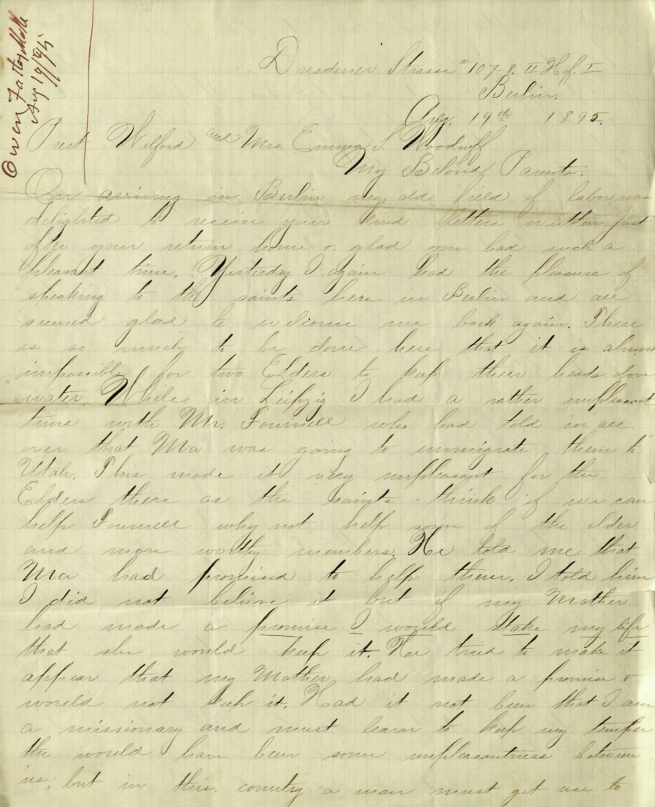 Aug 19/95
Dresdener Strasse 107-8. II H.f. I
Berlin.
Aug. 19th 1895.
Prest Wilford and Mrs Emma S. Woodruff
My Beloved Parents:
On arriving in Berlin my old field of labor was
delighted to receive your kind letters written just
after your return home & glad you had such a
pleasant time. Yesterday I again had the pleasure of
speaking to the saints here in Berlin and all
seemed glad to welcome me back again. There
is so much to be done here that it is almost
impossible for two Elders to keep their heads above
water. While in Leipzig I had a rather unpleasant
time with Mr. who had told in all
over that Ma was going to immigrate them to
Utah. This made it very unpleasant for the
Elders there as the Saints think if we can
help why not help some of the older
and more worthy members. He told me that
Ma had promised to help them. I told him
I did not believe it but if my Mother
had made a promise I would stake my life
that she would keep it. He tried to make it
appear that my Mother had made a promise &
would not keep it. Had it not been that I am
a missionary and must learn to keep my temper
the would have been some unpleasantness between
us; but in this country a man must get use to